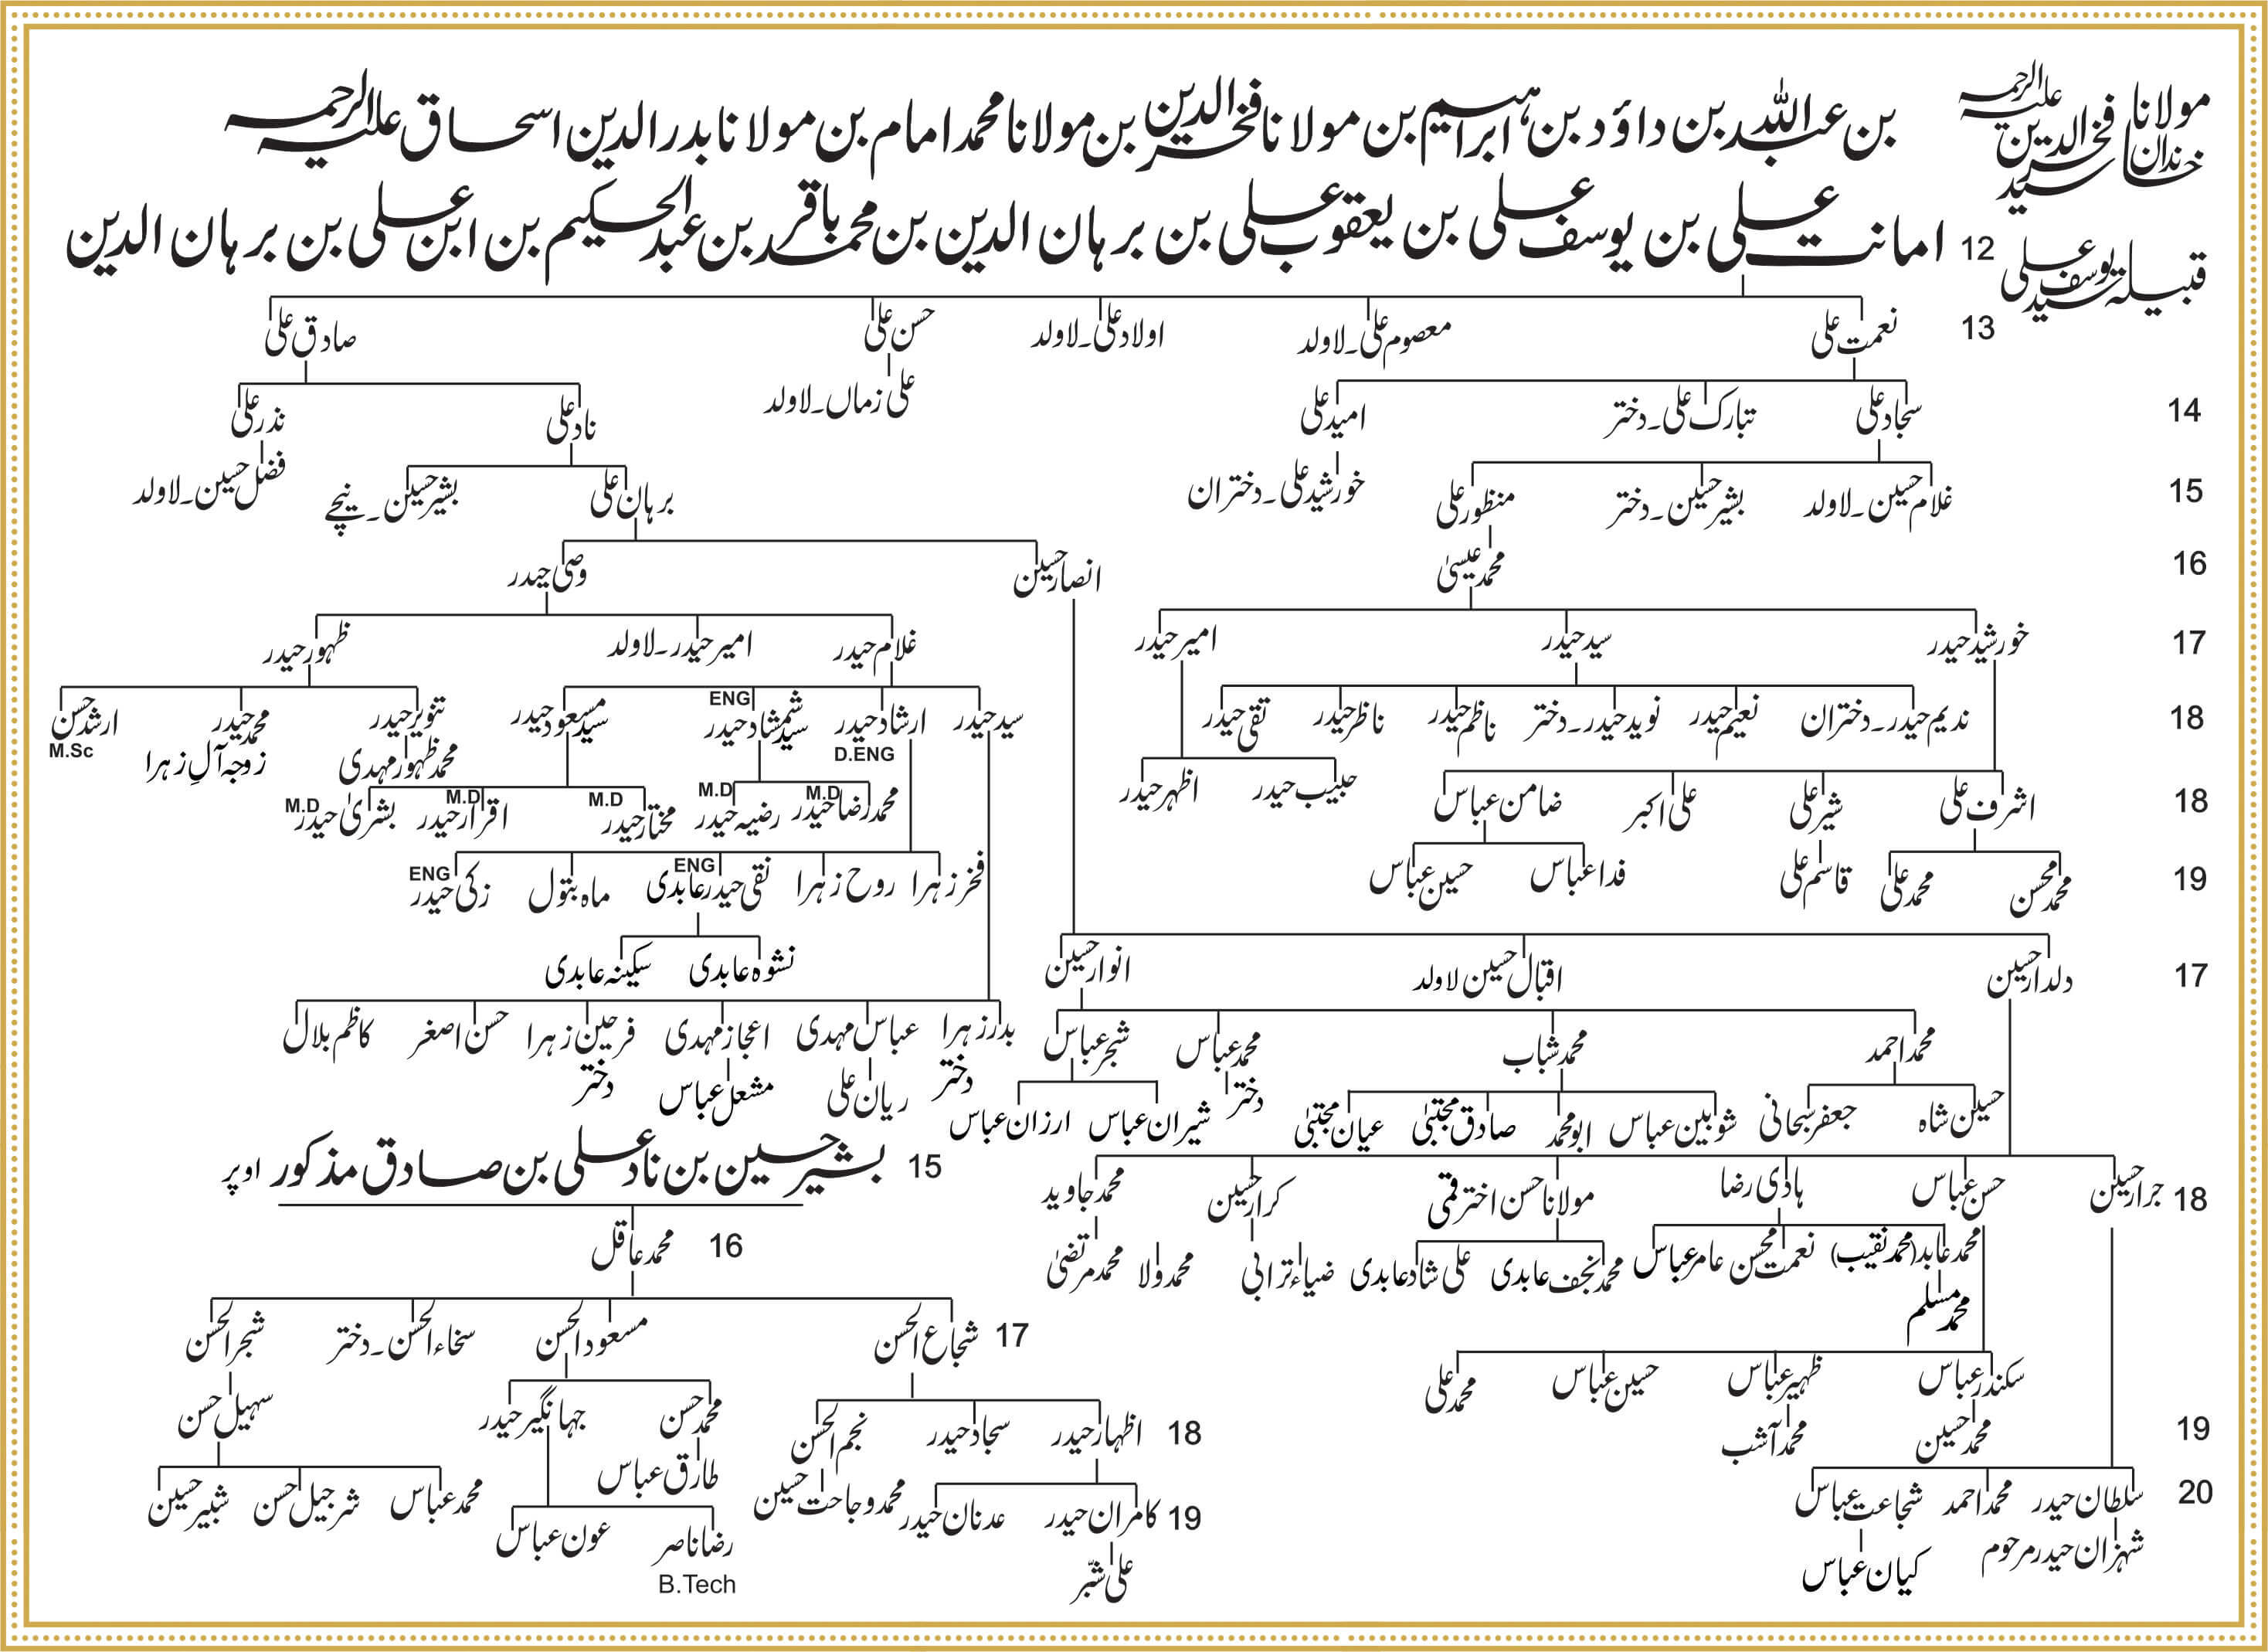 مولانا فخر الدین علیہ الرحمہ
خاندان سید
بن عبداللہ بن داؤد بن ابراہیم بن مولانا فخر الدین بن مولانا محمد امام بن مولانا بدر الدین اسحاق علیہ الرحمہ
قبیلہ سید یوسف علی
12 امانت علی بن یوسف علی بن یعقوب علی بن برہان الدین بن محمد باقر بن عبدالحکیم بن ابن علی بن برہان الدین
13 نعمت علی معصوم علی۔لاولد اولاد علی۔لاولد حسن علی صادق علی
14 سجاد علی تبارک علی۔دختر امید علی علی زماں۔لاولد ناد علی نذر علی
15 غلام حسین۔لاولد بشیر حسین۔دختر منظور علی خورشید علی۔دختران برہان علی بشیر حسین۔نیچے فضل حسین۔لاولد
16 محمد عیسیٰ انصار حسین وصی حیدر
17 خورشید حیدر سید حیدر امیر حیدر غلام حیدر امیر حیدر۔لاولد ظہور حیدر
18 ندیم حیدر۔دختران نعیم حیدر نوید حیدر۔دختر ناظم حیدر ناظر حیدر تقی حیدر سید حیدر ارشاد حیدر D.ENG سید شمشاد حیدر ENG سید مسعود حیدر تنویر حیدر محمد حیدر ارشد حسن M.Sc
محمد ظہور مہدی زوجہ آلِ زہرا
18 اشرف علی شیر علی علی اکبر ضامن عباس حبیب حیدر اظہر حیدر محمد رضا حیدر M.D رضیہ حیدر M.D مختار حیدر M.D اقرار حیدر M.D بشریٰ حیدر M.D
19 محمد محسن محمد علی قاسم علی فدا عباس حسین عباس فخر زہرا روح زہرا نقی حیدر عابدی ENG ماہ بتول زکی حیدر ENG
نشوہ عابدی سکینہ عابدی
17 دلدار حسین اقبال حسین لاولد انوار حسین
محمد احمد محمد شباب محمد عباس شجر عباس بدر زہرا عباس مہدی اعجاز مہدی فرحین زہرا حسن اصغر کاظم بلال
دختر ریان علی مشعل عباس دختر
حسین شاہ جعفر سبحانی شوبین عباس ابو محمد صادق مجتبیٰ عیان مجتبیٰ دختر شیران عباس ارزان عباس
15 بشیر حسین بن ناد علی بن صادق مذکور اوپر
18 جرار حسین حسن عباس ہادی رضا مولانا حسن اختر قمی کرار حسین محمد جاوید
16 محمد عاقل
محمد عابد (محمد نقیب) نعمت محسن عامر عباس محمد نجف عابدی علی شاد عابدی ضیاء ترابی محمد ولا محمد مرتضیٰ
محمد مسلم
17 شجاع الحسن مسعود الحسن سخاء الحسن۔دختر شجر الحسن
سکندر عباس ظہیر عباس حسین عباس محمد علی
19 محمد حسین محمد آشب
18 اظہار حیدر سجاد حیدر نجم الحسن محمد حسن جہانگیر حیدر سہیل حسن
طارق عباس
20 سلطان حیدر محمد احمد شجاعت عباس
19 کامران حیدر عدنان حیدر محمد وجاحت حسین محمد عباس شرجیل حسن شبیر حسین
رضا ناصر عون عباس
شہزان حیدر مرحوم کیان عباس
علی شبّر
B.Tech